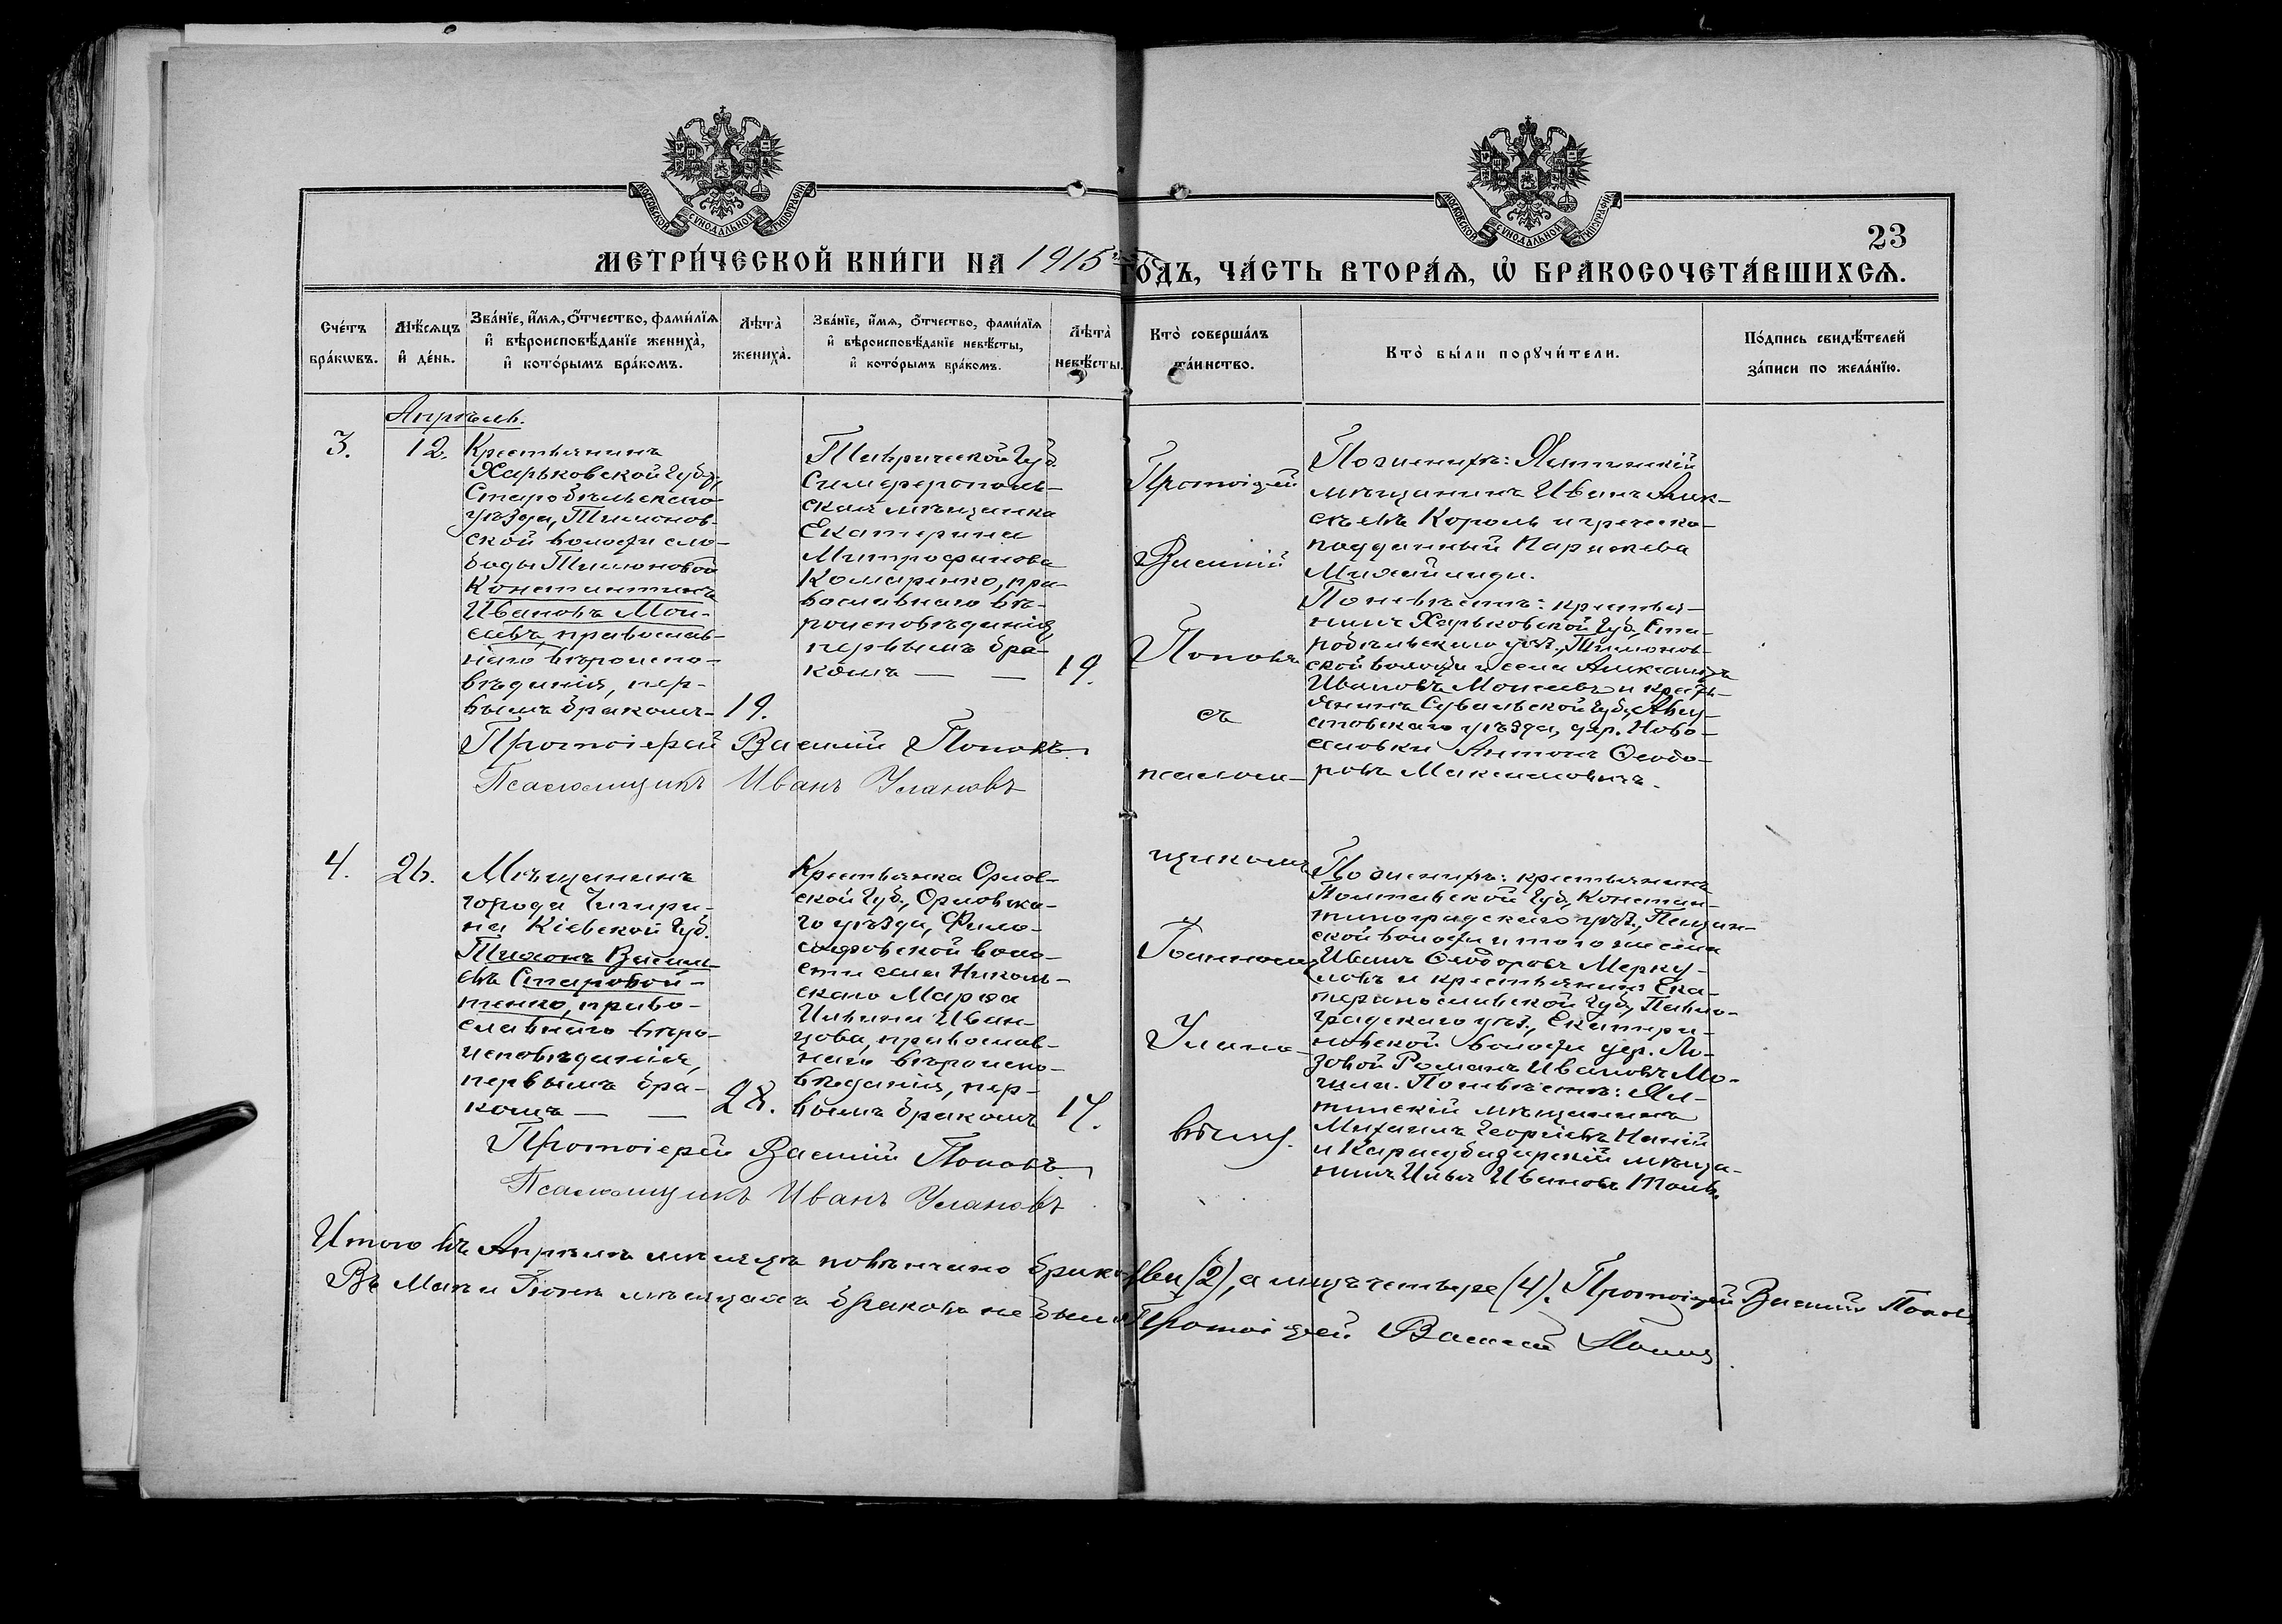 МОСКОВСКОЙ СѴНОДАЛЬНОЙ ТИПОГРАФІИ
МОСКОВСКОЙ СѴНОДАЛЬНОЙ ТИПОГРАФІИ
23
МЕТРИ́ЧЕСКОЙ КНИ́ГИ НА 1915 ГОДЪ, ЧА́СТЬ ВТОРА́Ѧ, Ѡ҆ БРАКОСОЧЕТА́ВШИХСѦ.
Сче́тъ
бра́кѡвъ.
Мѣ́сѧцъ
и҆ де́нь.
Зва́нїе, и҆́мѧ, ѻ҆́тчество, фами́лїѧ
и҆ вѣроисповѣ́данїе жениха̀,
и҆ кото́рымъ бра́комъ.
Лѣта̀
жениха̀.
Зва́нїе, и҆́мѧ, ѻ҆́тчество, фами́лїѧ
и҆ вѣроисповѣ́данїе невѣ́сты,
и҆ кото́рымъ бра́комъ.
Лѣта̀
невѣ́сты.
Кто̀ соверша́лъ
та́инство.
Кто̀ бы́ли порꙋчи́тели.
По́дпись свидѣ́телей
за́писи по жела́нїю.
Апрѣль.
3.
12.
Крестьянинъ
Харьковской губ.,
Старобѣльскаго
уѣзда, Тимонов-
ской волости сло-
боды Тимоновой
Константинъ
Ивановъ Мои-
сеевъ, православ-
наго вѣроиспо-
вѣданія, пер-
вымъ бракомъ-
19.
Таврической губ.
Симферополь-
ская мѣщанка
Екатерина
Митрофанова
Комаренко, пра-
вославнаго вѣ-
роисповѣданія,
первымъ бра-
комъ — —
19.
Протоіерей
Василій
Поповъ
съ
псалом-
щикомъ
Іоанномъ
Улано-
вымъ.
По женихѣ: Ялтинскій
мѣщанинъ Иванъ Алек-
сѣевъ Король и греческо-
подданный Параскева
Михайлиди.
По невѣстѣ: крестья-
нинъ Харьковской губ., Ста-
робѣльскаго уѣз., Тимонов-
ской волости и села Александръ
Ивановъ Моисеевъ и кресть-
янинъ Сувалкской губ., Авгу-
стовскаго уѣзда, дер. Ново-
Антонъ Ѳеодо-
ровъ Максимовичъ.
Протоіерей Василій Поповъ.
Псаломщикъ Иванъ Улановъ
4.
26.
Мѣщанинъ
города Чигири-
на Кіевской губ.
Тихонъ Василь-
евъ Старовой-
тенко, право-
славнаго вѣро-
исповѣданія,
первымъ бра-
комъ — —
28.
Крестьянка Орлов-
ской губ., Орловска-
го уѣзда, Фило-
софовской воло-
сти села Николь-
скаго Марѳа
Ильина Иван-
цова, православ-
наго вѣроиспо-
вѣданія, пер-
вымъ бракомъ
17.
По женихѣ: крестьянинъ
Полтавской губ., Констан-
тиноградскаго уѣз.,
ской волости и того же села
Иванъ Ѳеодоровъ Мерку-
ловъ и крестьянинъ Ека-
теринославской губ., Павло-
градскаго уѣз., Екатери-
новской волости дер. Ло-
зовой Романъ Ивановъ Мо-
гила. По невѣстѣ: Ял-
тинскій мѣщанинъ
Михаилъ Георгіевъ
и Карасубазарскій мѣща-
нинъ Илья Ивановъ
Протоіерей Василій Поповъ.
Псаломщикъ Иванъ Улановъ
Итого въ Апрѣлѣ мѣсяцѣ повѣнчано браковъ два (2), а четыре (4). Протоіерей Василій Поповъ
Въ Маѣ и Іюнѣ мѣсяцахъ браковъ не было Протоіерей Василій Поповъ.